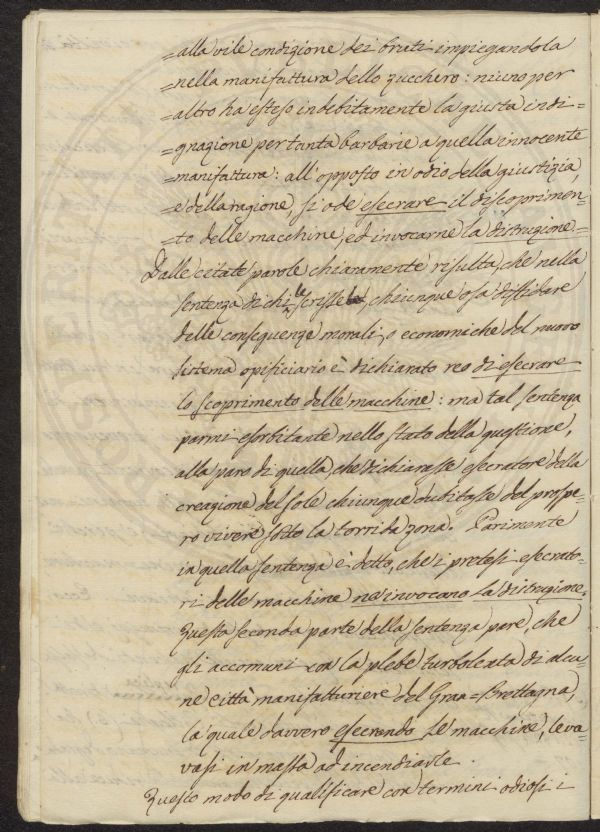 =alla vile condizione dei bruti impiegandola
=nella manifattura dello zucchero: niuno per
=altro ha esteso indebitamente la giusta indi=
=gnazione per tanta barbarie a quella innocente
=manifattura: all'opposto in odio della giustizia,
=e della ragione, si ode esecrare il discoprimen=
=to delle macchine, ed invocarne la distruzione=
Dalle citate parole chiaramente risulta, che nella
sentenza di chi la scrisse, chiunque osa diffidare
delle conseguenze morali, o economiche del nuovo
sistema opificiario è dichiarato reo di esecrare
lo scoprimento delle macchine: ma tal sentenza
parmi esorbitante nello stato della questione,
alla paro di quella, che dichiarasse esecratore della
creazione del sole chiunque dubitasse del prospe=
ro vivere sotto la torrida zona. Parimente
in quella sentenza è detto, che i pretesi esecrato=
ri delle macchine ne invocano la distruzione.
Questa seconda parte della sentenza pare, che
gli accomuni con la plebe turbolenta di alcu=
ne città manifatturiere del Gran=Brettagna,
la quale davvero esecrando le macchine, leva=
vasi in massa ad incendiarle.
Questo modo di qualificare con termini odiosi i